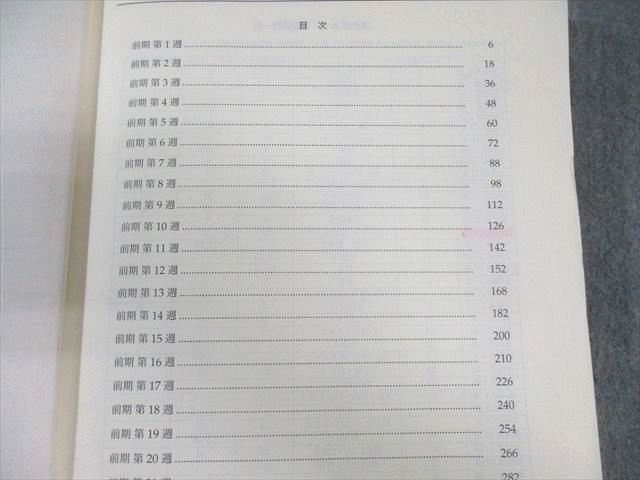 目 次
前期 第 1 週 6
前期 第 2 週 18
前期 第 3 週 36
前期 第 4 週 48
前期 第 5 週 60
前期 第 6 週 72
前期 第 7 週 88
前期 第 8 週 98
前期 第 9 週 112
前期 第 10 週 126
前期 第 11 週 142
前期 第 12 週 152
前期 第 13 週 168
前期 第 14 週 182
前期 第 15 週 200
前期 第 16 週 210
前期 第 17 週 226
前期 第 18 週 240
前期 第 19 週 254
前期 第 20 週 266
282